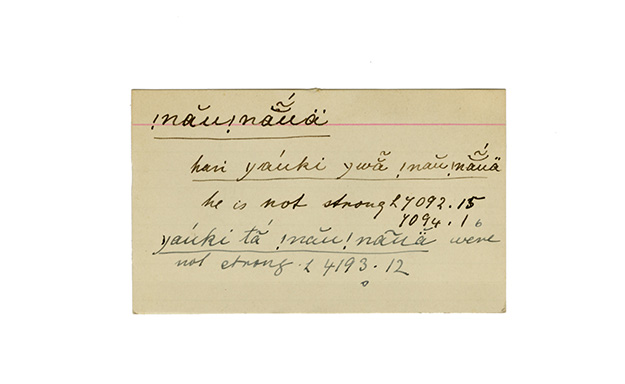 !nău!nẵ́uä
han yáuki ywã !nău!nẵ́uä
he is not strong L 7092.15
7094.16
yáuki tá !nău!nẵuä were
not strong L 4193.12